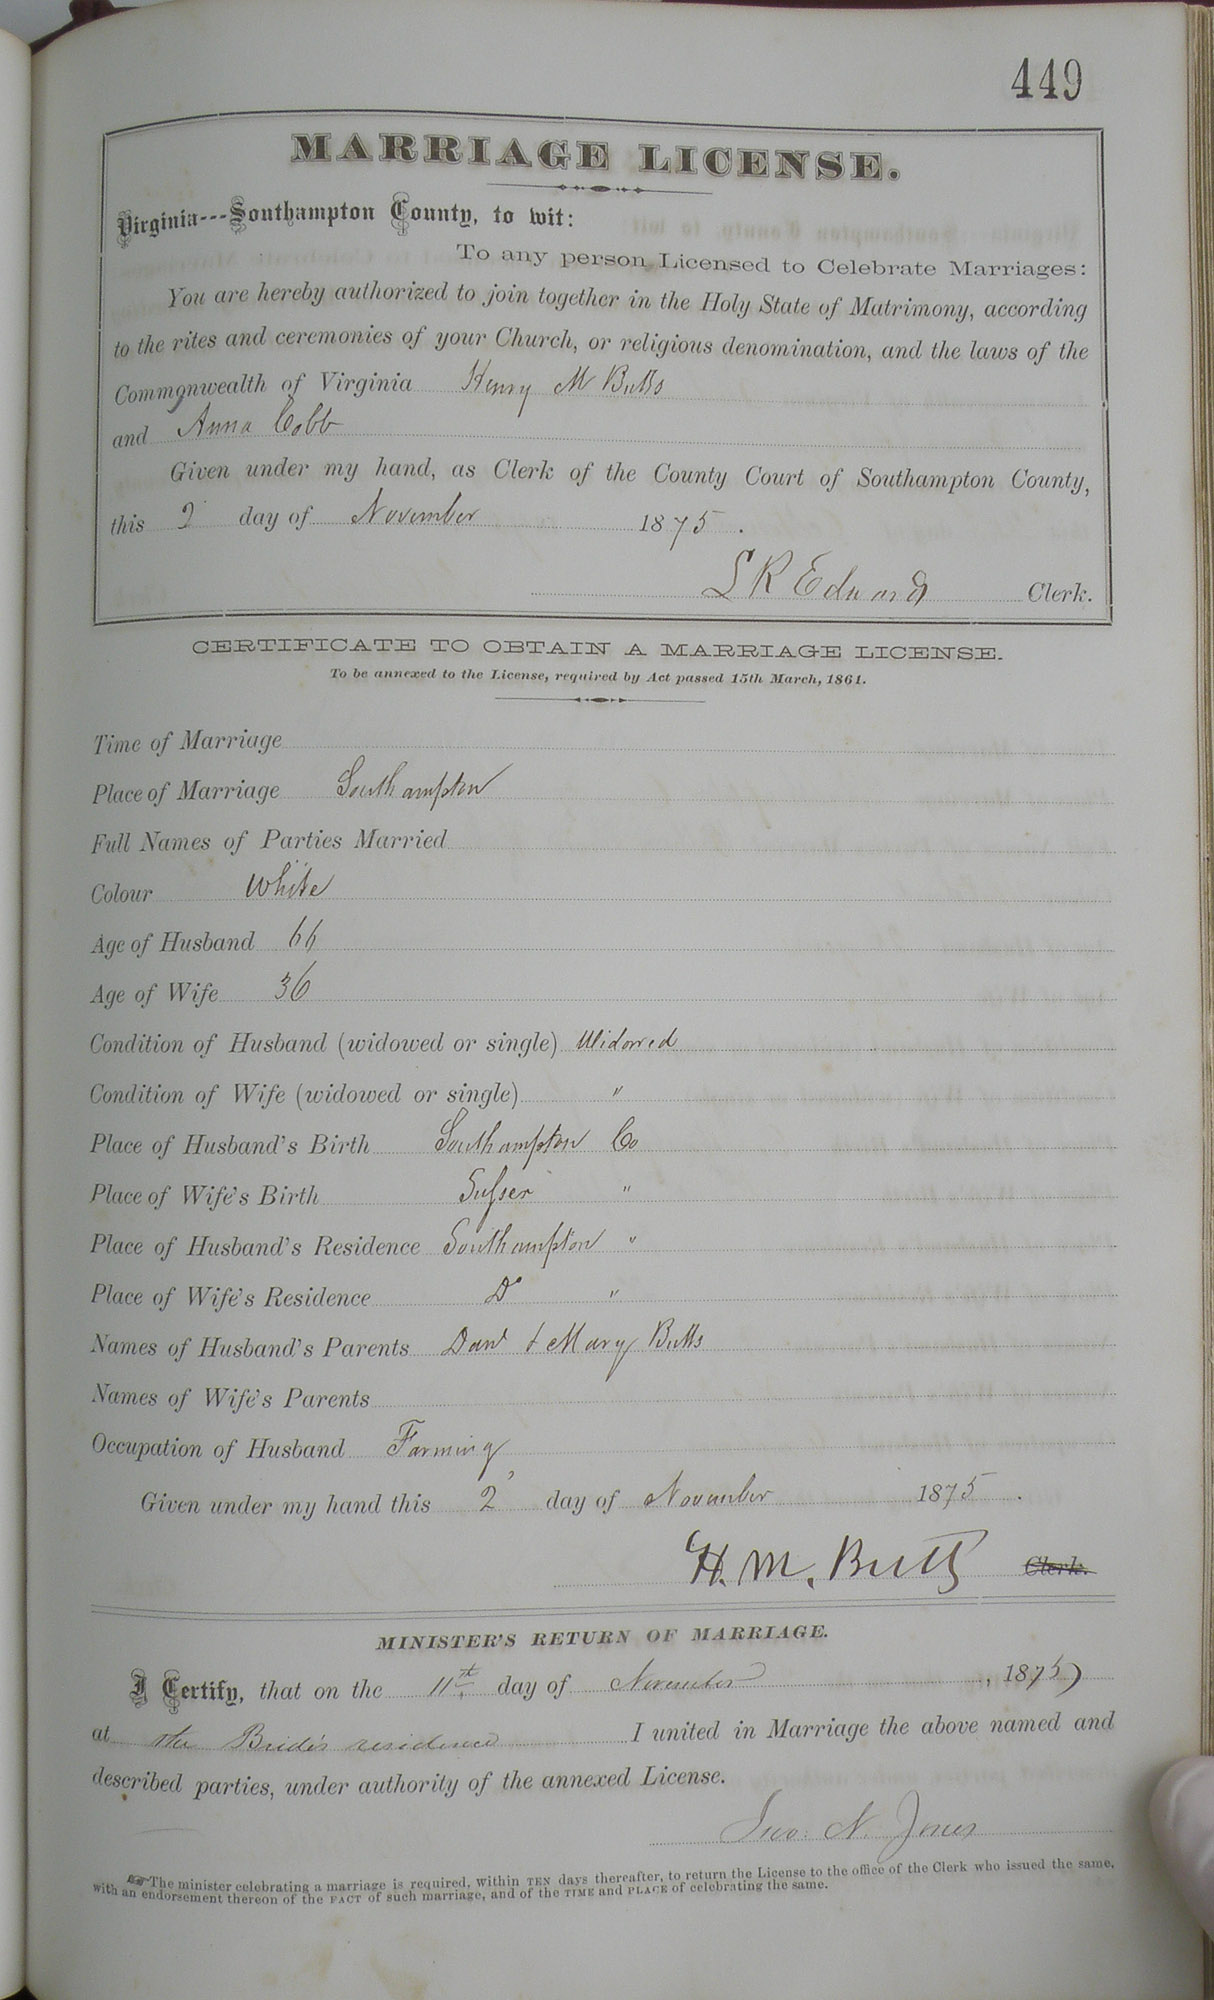 449
MARRIAGE LICENSE.
Virginia---Southampton County, to wit:
To any person Licensed to Celebrate Marriages:
You are hereby authorized to join together in the Holy State of Matrimony, according
to the rites and ceremonies of your Church, or religious denomination, and the laws of the
Commonwealth of Virginia Henry M Butts
and Anna Cobb
Given under my hand, as Clerk of the County Court of Southampton County,
this 2 day of November 1875.
L R Edwards Clerk.
CERTIFICATE TO OBTAIN A MARRIAGE LICENSE.
To be annexed to the License, required by Act passed 15th March, 1861.
Time of Marriage
Place of Marriage Southampton
Full Names of Parties Married
Colour White
Age of Husband 66
Age of Wife 36
Condition of Husband (widowed or single) Widowed
Condition of Wife (widowed or single) "
Place of Husband's Birth Southampton Co
Place of Wife's Birth Sussex "
Place of Husband's Residence Southampton "
Place of Wife's Residence Do "
Names of Husband's Parents Danl & Mary Butts
Names of Wife's Parents
Occupation of Husband Farming
Given under my hand this 2 day of November 1875.
H. M. Butts Clerk.
MINISTER'S RETURN OF MARRIAGE.
I Certify, that on the 11th day of November, 1875
at the Bride's residence I united in Marriage the above named and
described parties, under authority of the annexed License.
Jno. N. Jones
☞The minister celebrating a marriage is required, within TEN days thereafter, to return the License to the office of the Clerk who issued the same,
with an endorsement thereon of the FACT of such marriage, and of the TIME and PLACE of celebrating the same.